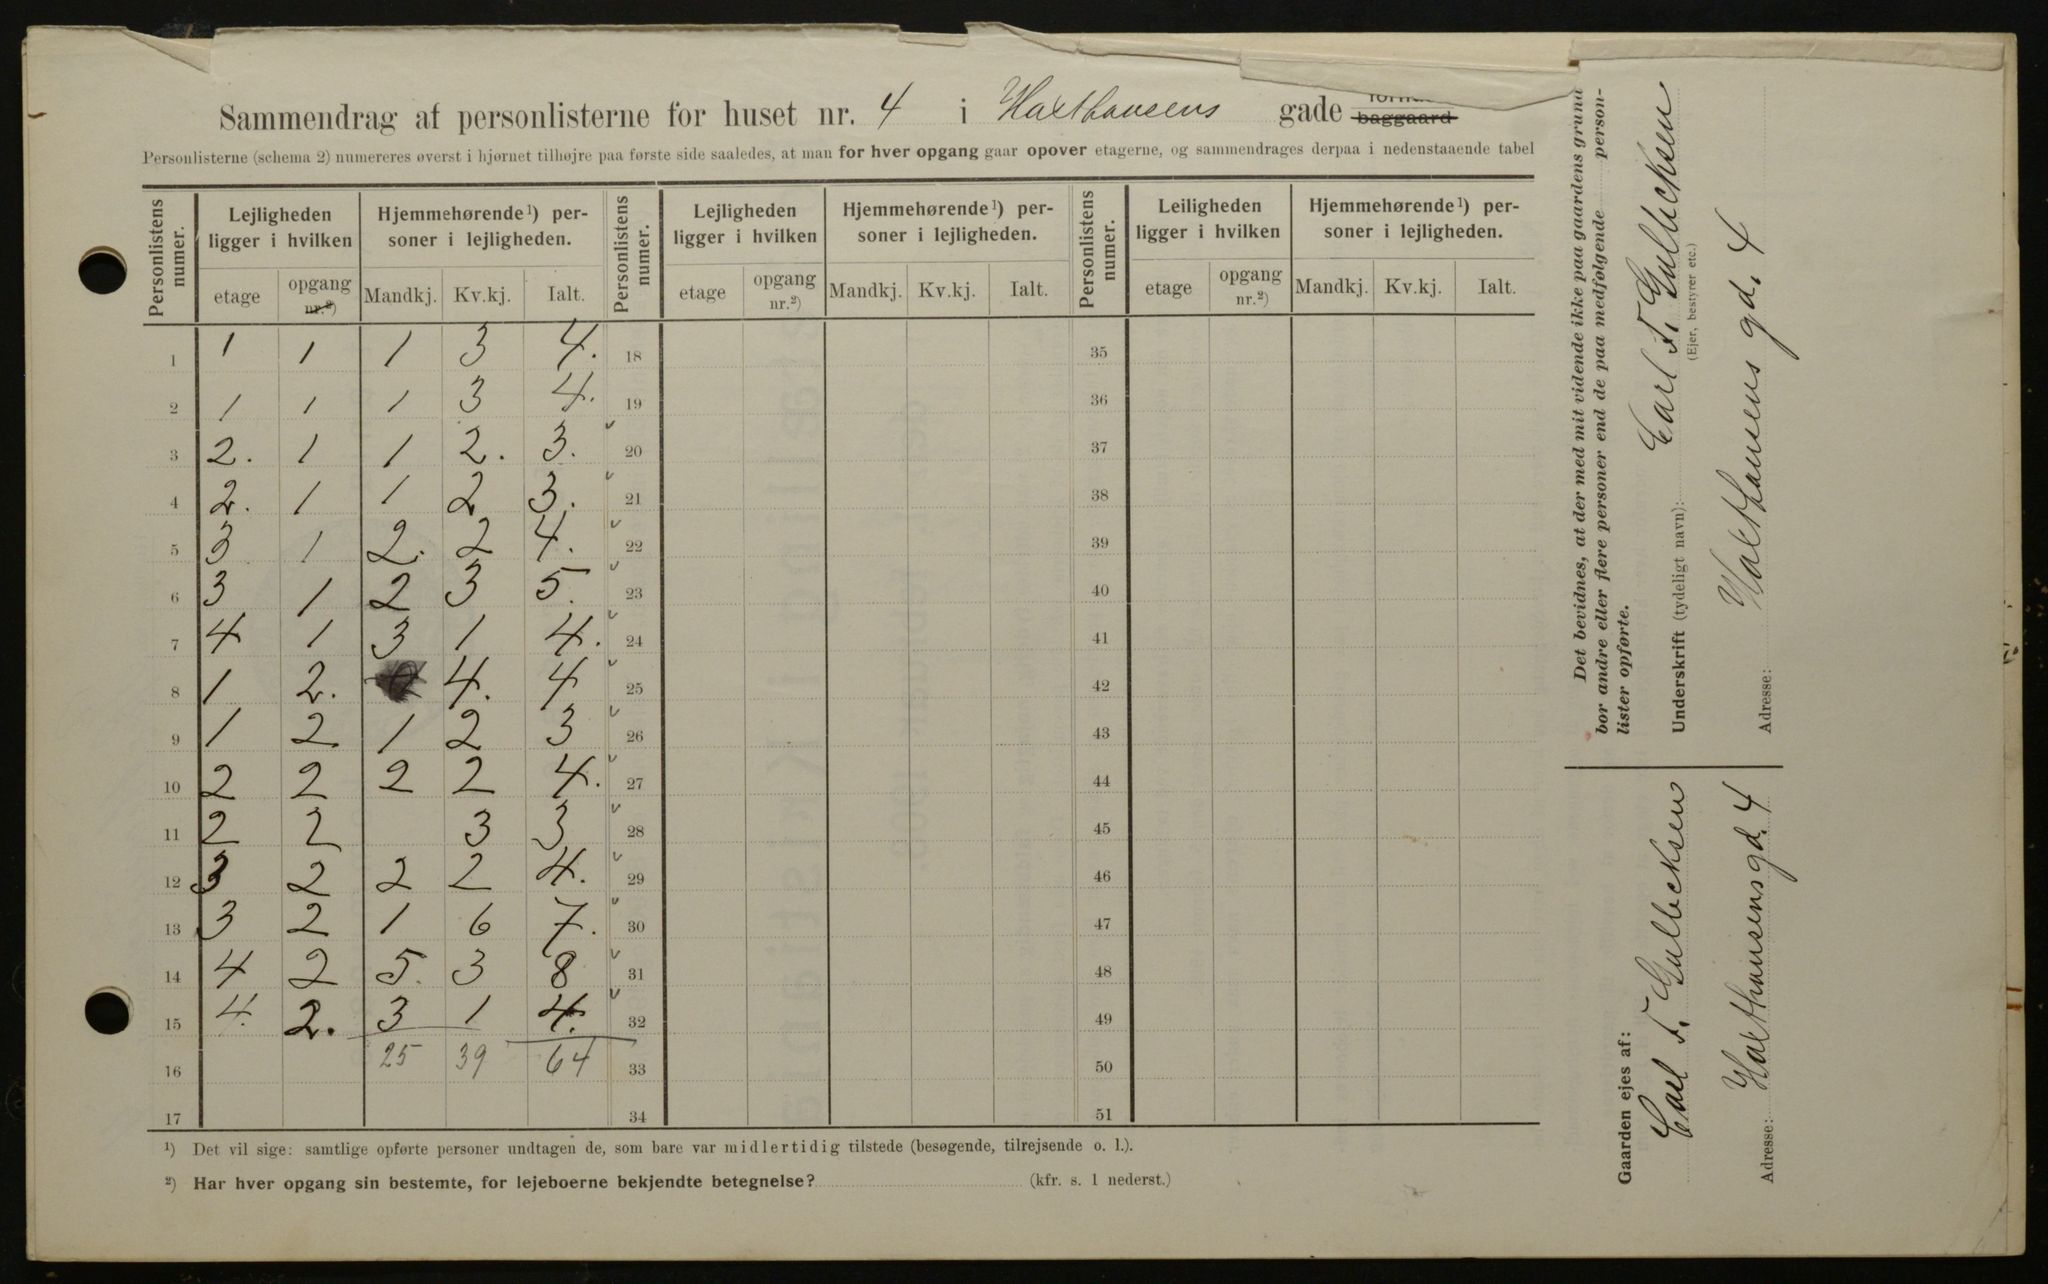 Sammendrag af personlisterne for huset nr. 4 i Haxthausens gade baggaard
Personlisterne (schema 2) numereres øverst i hjørnet tilhøjre paa første side saaledes, at man for hver opgang gaar opover etagerne, og sammendrages derpaa i nedenstaaende tabel
Personlistens numer. Lejligheden ligger i hvilken Hjemmehørende¹) personer i lejligheden. Personlistens numer. Lejligheden ligger i hvilken Hjemmehørende¹) personer i lejligheden. Personlistens numer. Leiligheden ligger i hvilken Hjemmehørende¹) personer i lejligheden.
etage opgang nr.²) Mandkj. Kv.kj. Ialt. etage opgang nr.²) Mandkj. Kv.kj. Ialt. etage opgang nr.²) Mandkj. Kv.kj. Ialt.
1 1 1 1 3 4. 18 35
2 1 1 1 3 4. 19 36
3 2. 1 1 2. 3. 20 37
4 2. 1 1 2 3. 21 38
5 3 1 2. 2 4. 22 39
6 3 1 2 3 5. 23 40
7 4 1 3 1 4. 24 41
8 1 2. 4. 4 25 42
9 1 2 1 2 3 26 43
10 2 2 2 2 4. 27 44
11 2 2 3 3 28 45
12 3 2 2 2 4. 29 46
13 3 2 1 6 7. 30 47
14 4 2 5. 3 8 31 48
15 4. 2. 3 1 4. 32 49
16 25 39 64 33 50
17 34 51
¹) Det vil sige: samtlige opførte personer undtagen de, som bare var midlertidig tilstede (besøgende, tilrejsende o. l.).
²) Har hver opgang sin bestemte, for lejeboerne bekjendte betegnelse? (kfr. s. 1 nederst.)
Det bevidnes, at der med mit vidende ikke paa gaardens grund
bor andre eller flere personer end de paa medfølgende person-
lister opførte.
Underskrift (tydeligt navn): Carl F. Gulbcksen
(Ejer, bestyrer etc.)
Adresse: Haxthausens gd. 4
Gaarden ejes af:
Carl F. Gulbcksen
Adresse: Haxthausensgd. 4